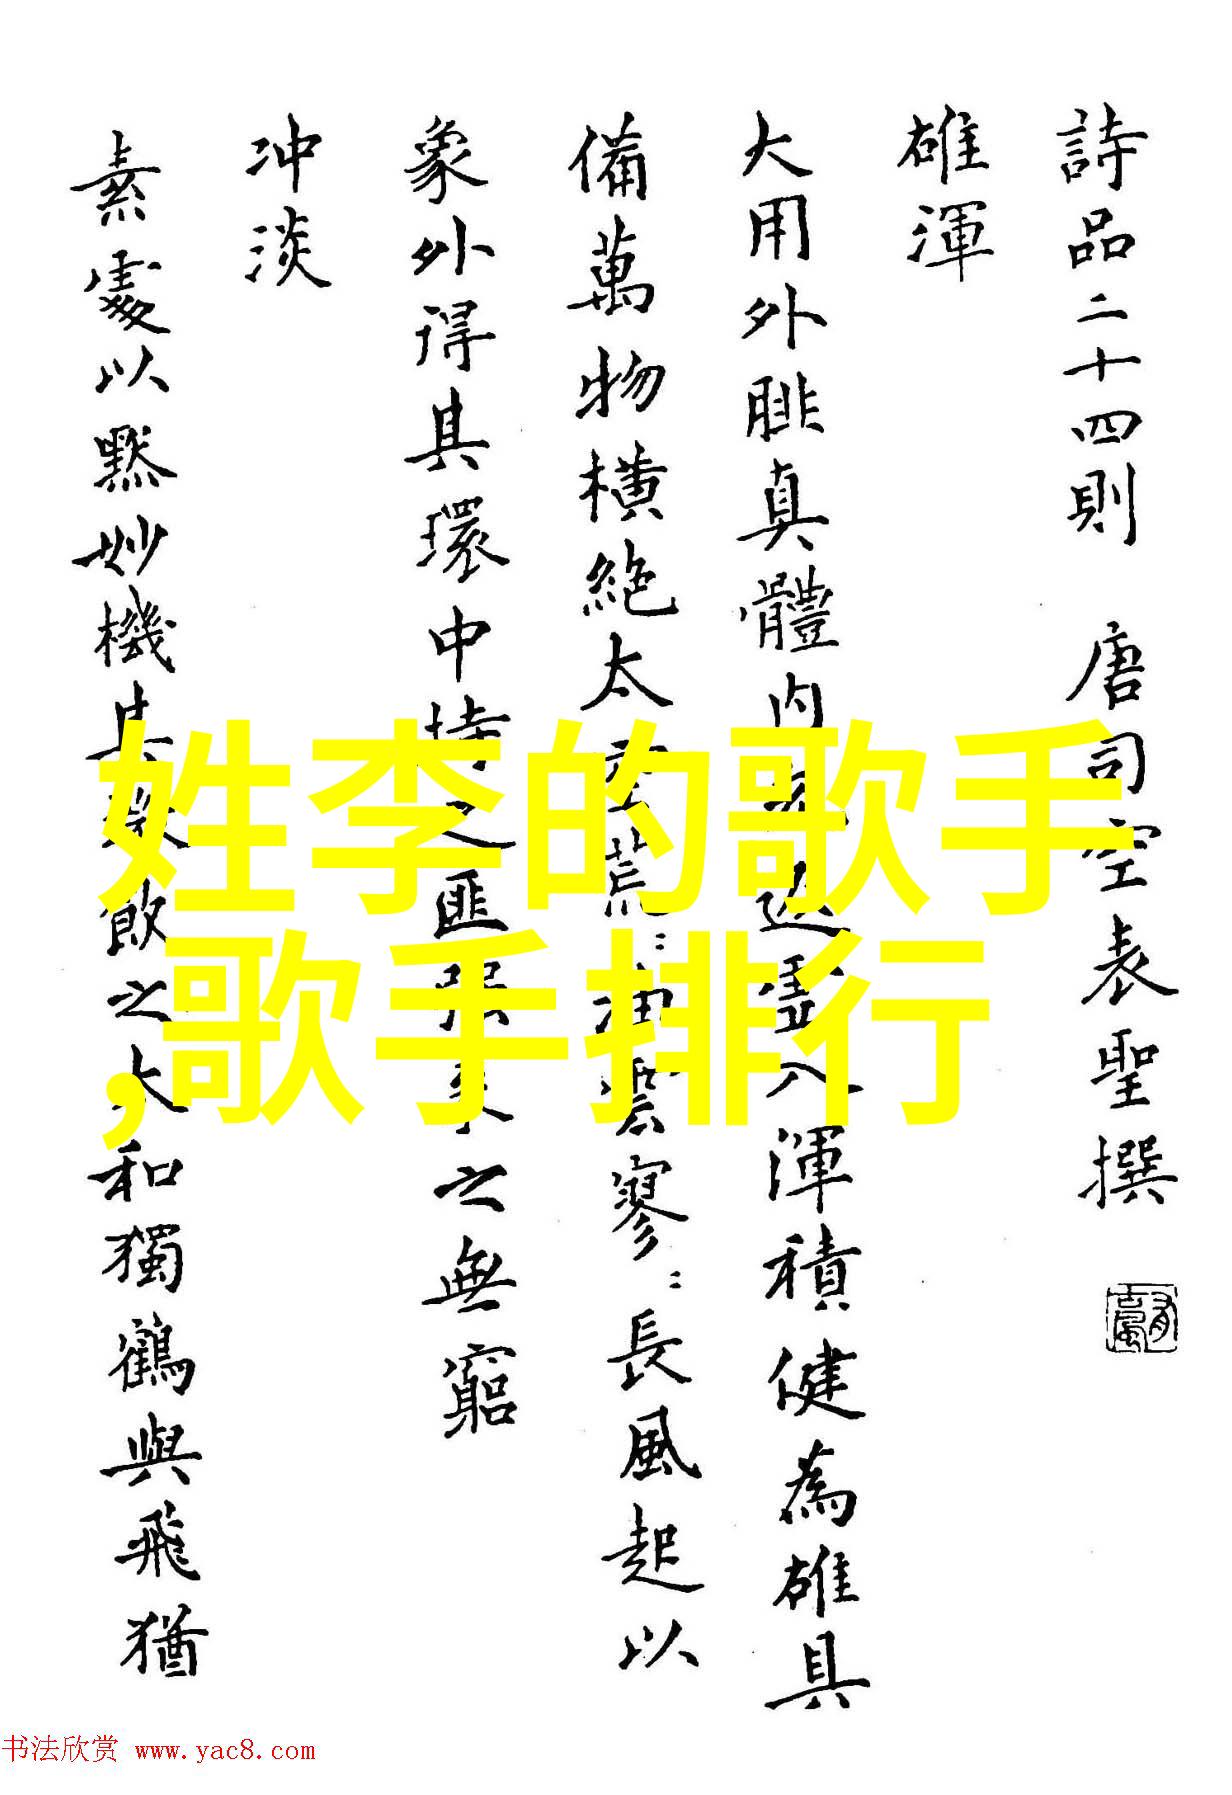 詩品二十四則 唐司空表聖撰
雄渾
大用外腓真體内充返虛入渾積健為雄具
備萬物橫絶太空荒〻油雲寥〻長風起以
象外得其環中持之匪强來之無窮
冲淡
素處以默妙機其微飲之太和獨鶴與飛猶
姓李的歌手
,歌手排行
书法欣赏 www.yac8.com